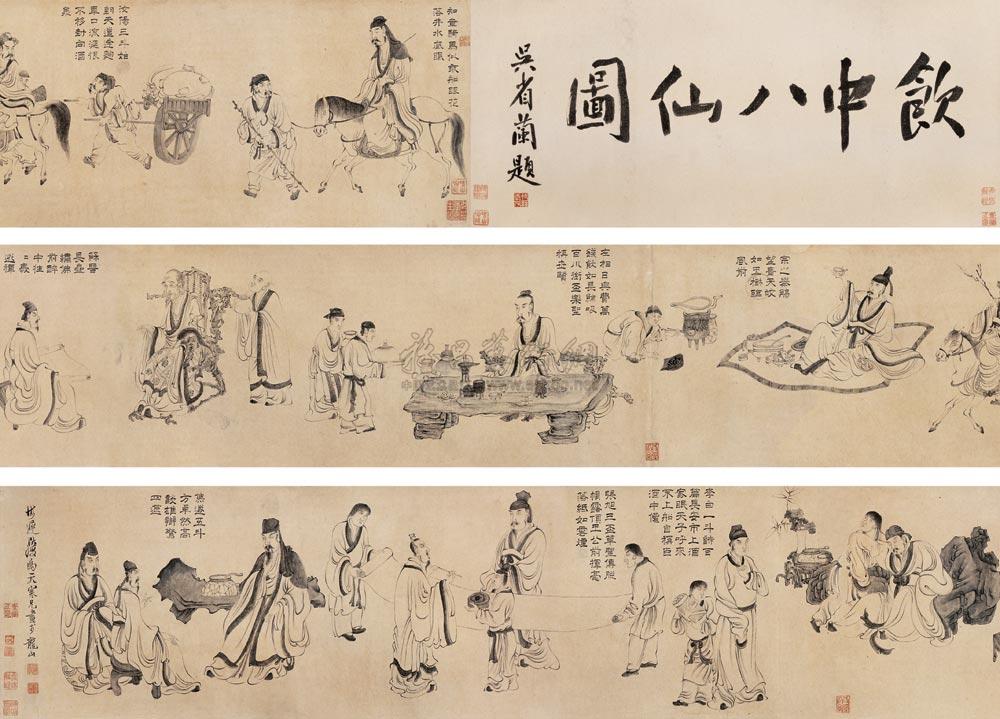 飲中八仙圖
吳省蘭題
知章騎馬似乘船眼花
落井水底眠
汝陽三斗始
朝天道逢麴
車口流涎恨
不移封向酒
泉
宗之舉觴
望青天皎
如玉樹臨
風前
左相日興費萬
錢飲如長鯨吸
百川銜盃樂聖
稱賢
蘇晉
長齋
繡佛
前醉
中往
〻愛
逃禪
李白一斗詩百
篇長安市上酒
家眠天子呼來
不上船自稱臣
酒中僊
張旭三盃草聖傳脫
帽露頂王公前揮毫
落紙如雲煙
焦遂五斗
方卓然高
談雄辯驚
四筵
龍山